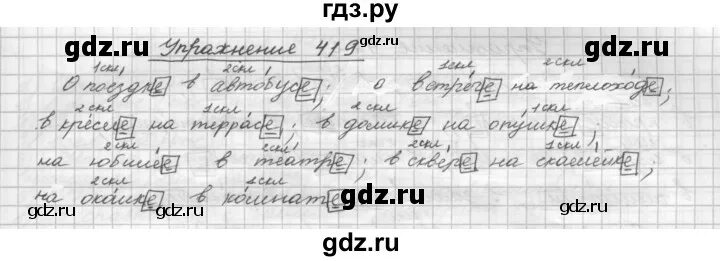 гдз.ру
gdz.ru Упражнение 419 gdz.ru
1скл 2скл 1скл 2скл
О поездке в автобусе; о встрече на теплоходе;
2скл 1скл 2скл 1скл
в кресле на террасе; в домике на опушке;
2скл 2скл 2скл 1скл
на юбилее в театре; в сквере на скамейке;
2скл 1скл
на окошке в комнате.
gdz.ru gdz.ru
gdz.ru